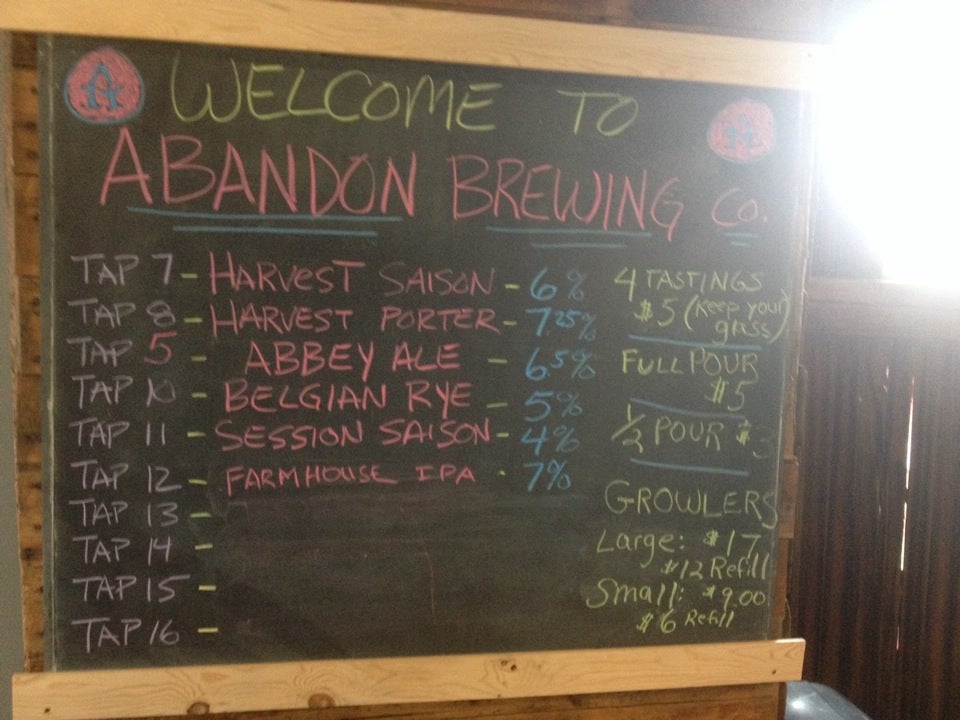 A
WELCOME TO
A
ABANDON BREWING Co.
TAP 7 - HARVEST SAISON - 6%
TAP 8 - HARVEST PORTER - 7.25%
TAP 5 - ABBEY ALE - 6.5%
TAP 10 - BELGIAN RYE - 5%
TAP 11 - SESSION SAISON - 4%
TAP 12 - FARMHOUSE IPA - 7%
TAP 13 -
TAP 14 -
TAP 15 -
TAP 16 -
4 TASTINGS
$5 (Keep your
glass)
FULL POUR
$5
1/2 POUR $3
GROWLERS
Large: $17
$12 Refill
Small: $9.00
$6 Refill